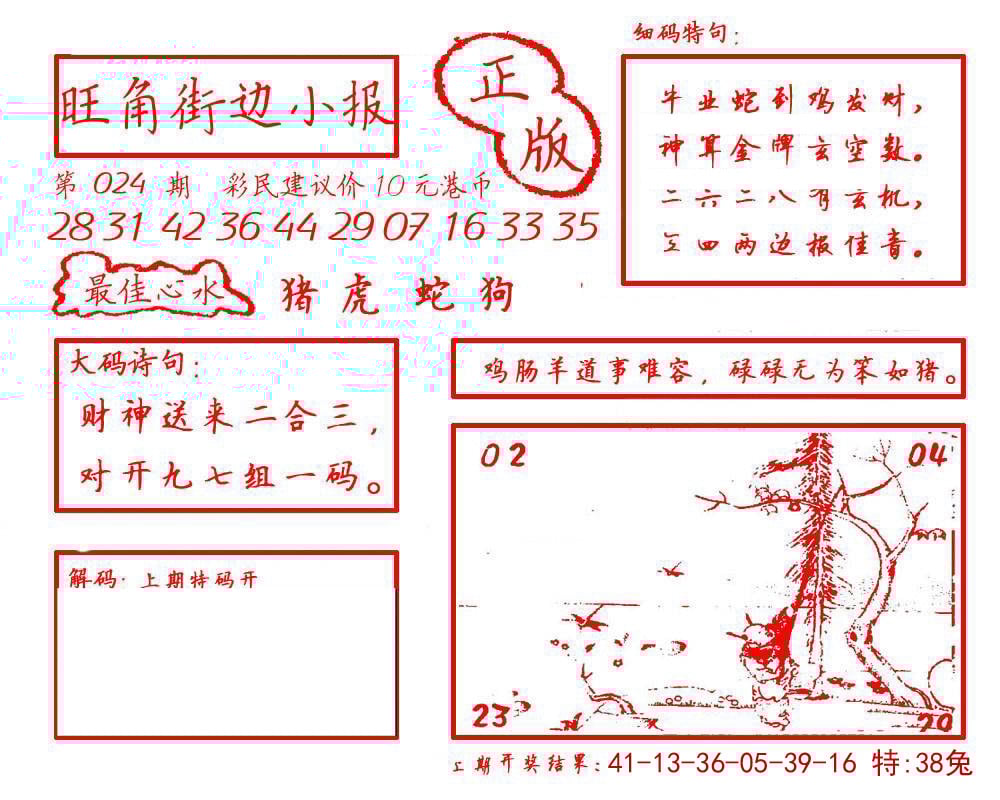 旺角街边小报
正版
第 024 期 彩民建议价 10 元港币
28 31 42 36 44 29 07 16 33 35
最佳心水 猪 虎 蛇 狗
细码特句：
牛业蛇到鸡发财，
神算金牌玄空数。
二六二八有玄机，
三四两边报佳音。
大码诗句：
财神送来二合三，
对开九七组一码。
鸡肠羊道事难容，碌碌无为笨如猪。
02
04
23
20
解码·上期特码开
上期开奖结果：41-13-36-05-39-16 特:38兔